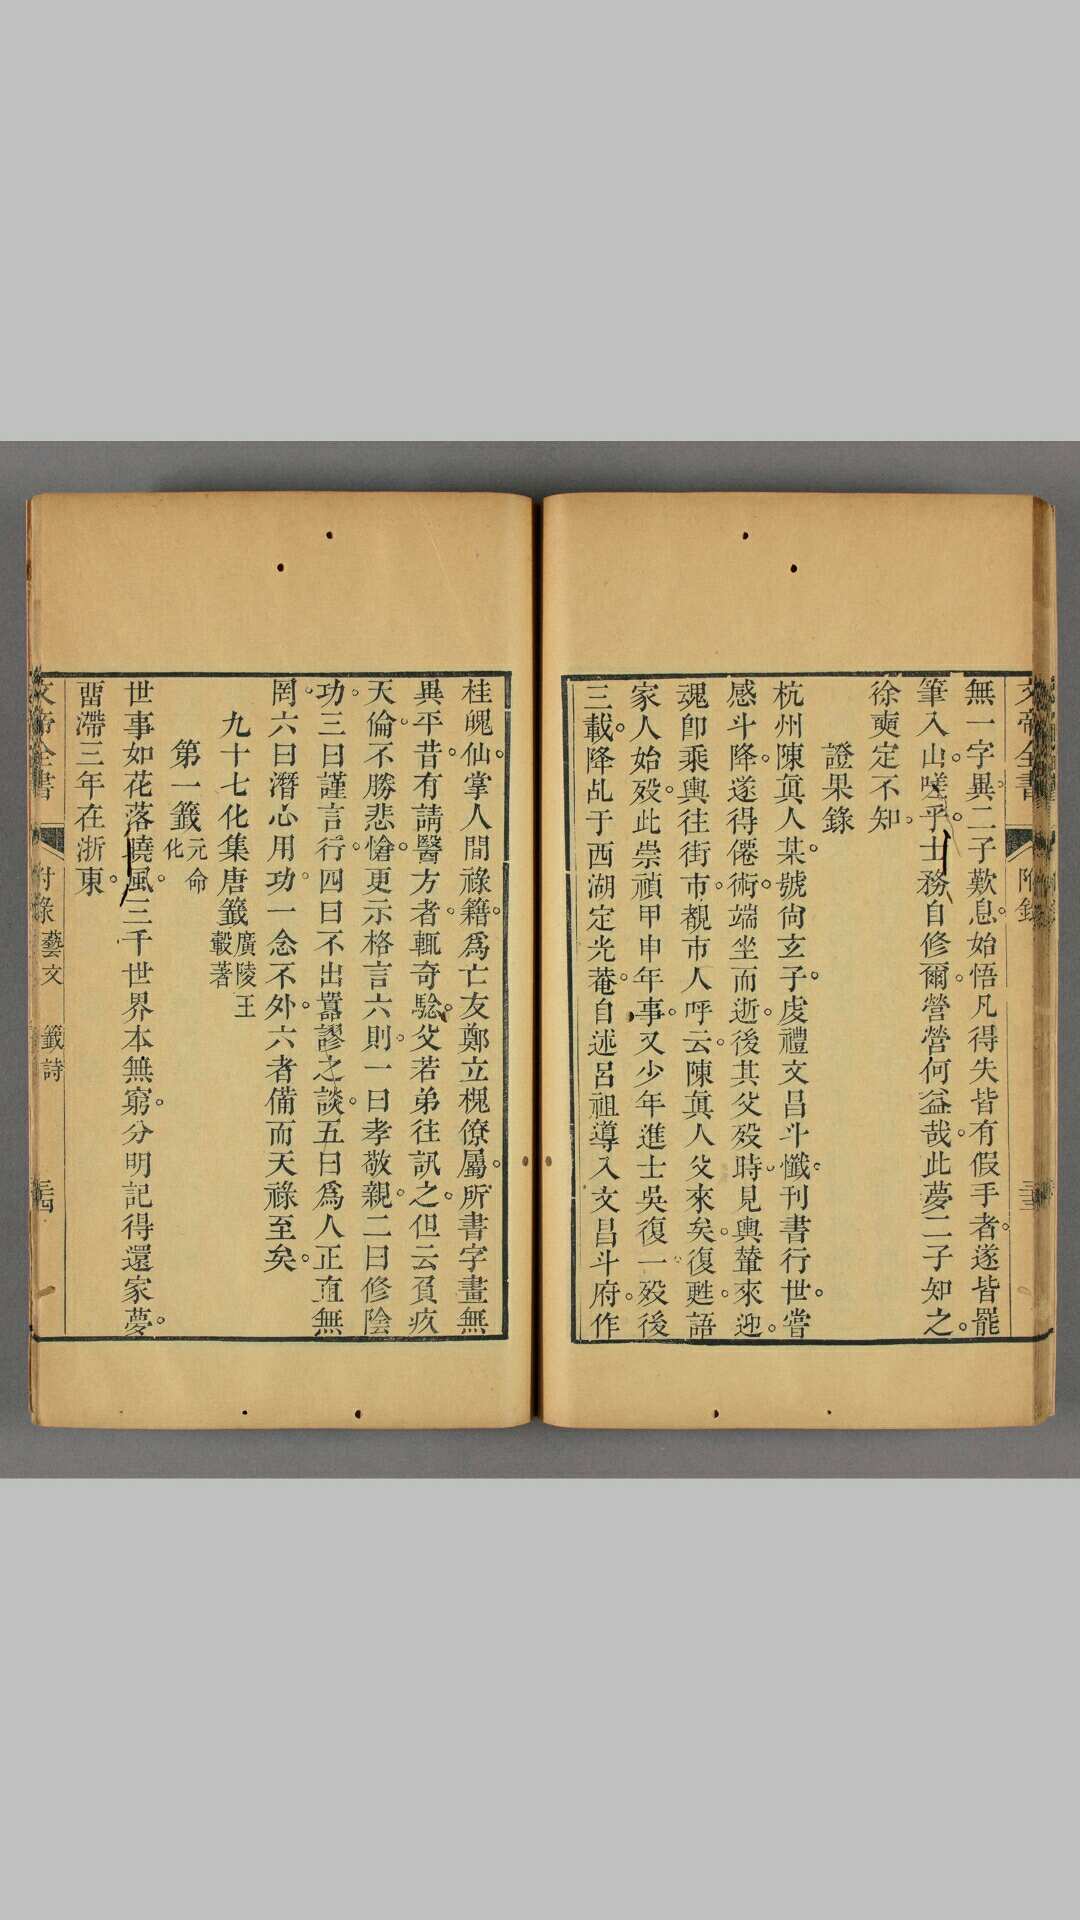 無一字異二子歎息。始悟凡得失皆有假手者。遂皆罷
筆入山。嗟乎。士務自修爾。營營何益哉。此夢二子知之。
徐奭定不知。
證果錄
杭州陳眞人某。號尙玄子。虔禮文昌斗懺。刊書行世。嘗
感斗降。遂得僊術。端坐而逝。後其父歿時。見輿輦來迎。
魂卽乘輿往街市。覩市人呼云。陳眞人父來矣。復甦。語
家人始歿。此崇禎甲申年事。又少年進士吳復一。歿後
三載。降乩于西湖定光菴。自述呂祖導入文昌斗府。作
桂魄仙。掌人間祿籍。爲亡友鄭立槐僚屬。所書字畫無
異平昔。有請醫方者。輒奇驗。父若弟往訊之。但云負疚
天倫。不勝悲愴。更示格言六則。一曰孝敬親。二曰修陰
功。三曰謹言行。四曰不出嚚謬之談。五曰爲人正直無
罔。六曰潛心用功。一念不外。六者備而天祿至矣。
九十七化集唐籤廣陵王
轂著
第一籤元命
化
世事如花落曉風。三千世界本無窮。分明記得還家夢。
畱滯三年在浙東。
文帝全書 附錄 藝文 籤詩 三四